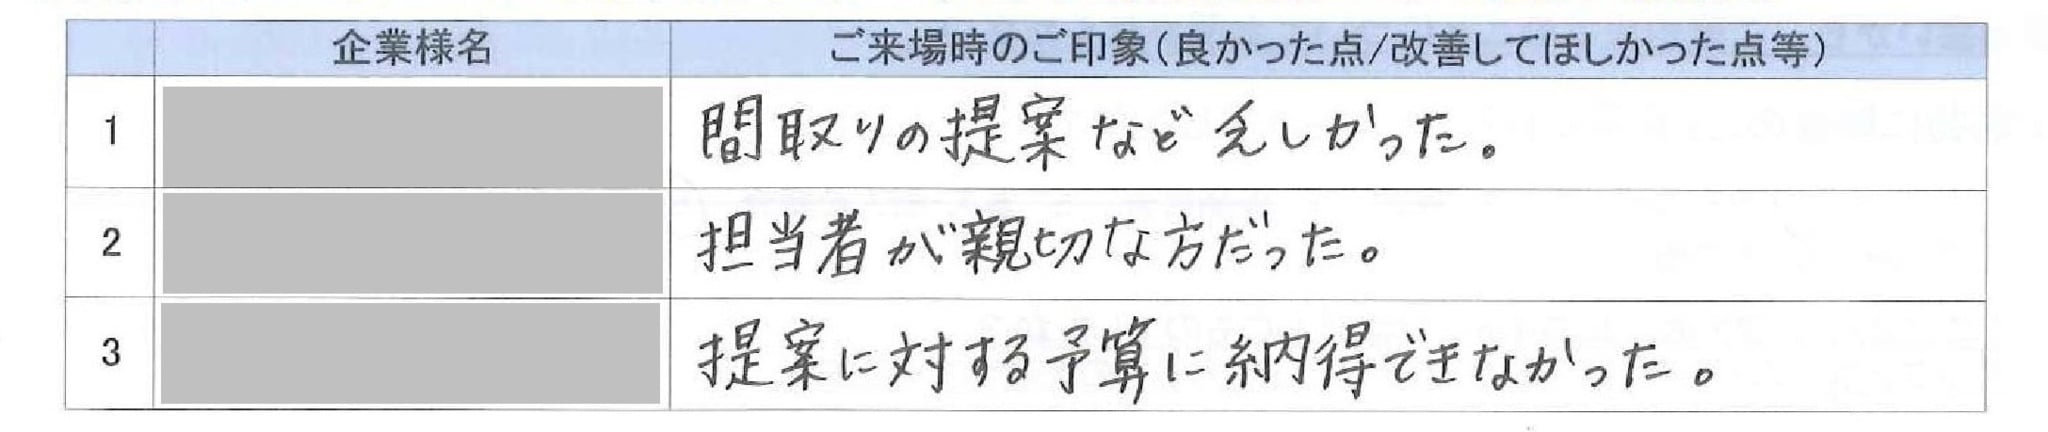 企業様名 ご来場時のご印象(良かった点/改善してほしかった点等)
1 間取りの提案など乏しかった。
2 担当者が親切な方だった。
3 提案に対する予算に納得できなかった。